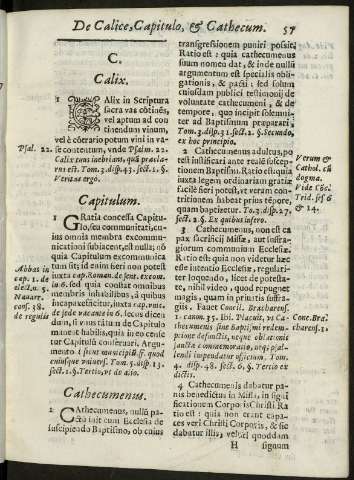 De Calice, Capitulo, & Cathecum. 57
C.
Calix.
1 Calix in Scriptura
sacra vas cōtinōs,
vel aptum ad con
tinendum vinum,
vel è cōtrario potum vini in va-
Psal. 22. se contentum, vnde Psalm. 22.
Calix tuus inebrians, quā præcla-
rus est. Tom. 3. disp. 43. sect. 1. §.
Veritas ergo.
Capitulum.
1 Gratia concessa Capitu-
lo, seu communitati, cu-
ius omnia membra excommu-
nicationi subiacent, est nulla; eò
quia Capitulum excommunica
Abbas in tum sit; id enim fieri non potest
cap. 1. de iuxta cap. Romana de sent. excom.
elect. n. 5. in 6. sed quia constat omnibus
Nauarr. membris inhabilibus, à quibus
cons. 18. incapax efficitur, iuxta cap. vnic.
de regulis de sede vacante in 6. secus dicen
dum, si vnus tātum de Capitulo
maneat habilis, quia in eo conse
tur Capitulū conseruari. Argum-
ento l. sicut municipiū ff. quod
cuiusque vniuers. Tom. 3. disp. 13.
sect. 2. §. Tertio, vt de alio.
Cathecumenus.
1 Cathecumenus, nullū pa-
ctū init cum Ecclesia de
suscipiendo Baptismo, ob cuius
transgressionem puniri possit.
Ratio est: quia cathecumenus
suum nomen dat, & inde nullū
argumentum est specialis obli-
gationis, & pacti; sed solum
cuiusdam publici testimonij de
voluntate cathecumeni, & de
tempore, quo incipit solemni-
ter ad Baptismum præparari;
Tom. 3. disp. 31. sect. 2. §. Secundo,
ex hoc principio.
2 Cathecumenus adultus, po
test iustificari ante reale suscep-
tionem Baptismi. Ratio est: quia
iuxta legem ordinariam gratiæ
facilè fieri potest, vt veram con-
tritionem habeat prius tēpore,
quam baptizetur. To. 3. disp. 27.
sect. 2. §. Ex quibus infero.
Verum &
Cathol. est
dogma.
Vide Cōc.
Trid. ses 6
& 14.
3 Cathecumenus, non est ca
pax sacrificij Missæ, aut suffra-
giorum communium Ecclesiæ.
Ratio est: quia non videtur hæc
esse intentio Ecclesiæ, regulari-
ter loquendo, licet de potesta-
te, nihil video, quod repugnet
magis, quam in priuatis suffra-
gijs. Fauet Concil. Bracharens.
1. canon. 35. ibi. Placuit, vt Ca-
thecumenis sine Baptismi redem-
ptione defunctis, neque oblationis
sancta commemoratio, neque psal-
lendi impendatur officium. Tom.
4. disp. 48. sect. 6. §. Tertio ex
dictis.
Conc. Bra-
charens. 1.
4 Cathecumenis dabatur pa-
nis benedictus in Missa, in signi
ficationem Corporis Christi Ra
tio est: quia non erant capa-
ces veri Christi Corporis, & sic
dabatur illis, veluti quoddam
H signum